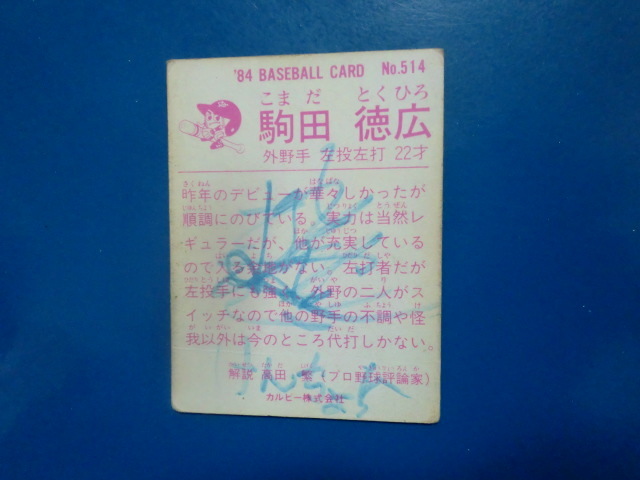 '84 BASEBALL CARD No.514
こまだ とくひろ
駒田 徳広
外野手 左投左打 22才
昨年のデビューが華々しかったが
順調にのびている。実力は当然レ
ギュラーだが、他が充実している
ので入る余地がない。左打者だが
左投手にも強い。外野の二人がス
イッチなので他の野手の不調や怪
我以外は今のところ代打しかない。
解説 高田 繁(プロ野球評論家)
カルビー株式会社